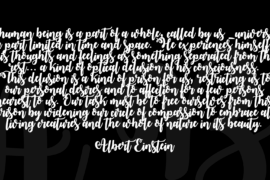 human being is a part of a whole, called by us _univers
part limited in time and space. He experiences himself
is thoughts and feelings as something separated from th
rest... a kind of optical delusion of his consciousness.
This delusion is a kind of prison for us, restricting us to
our personal desires and to affection for a few persons
nearest to us. Our task must be to free ourselves from this
prison by widening our circle of compassion to embrace all
living creatures and the whole of nature in its beauty.
©Albert Einstein